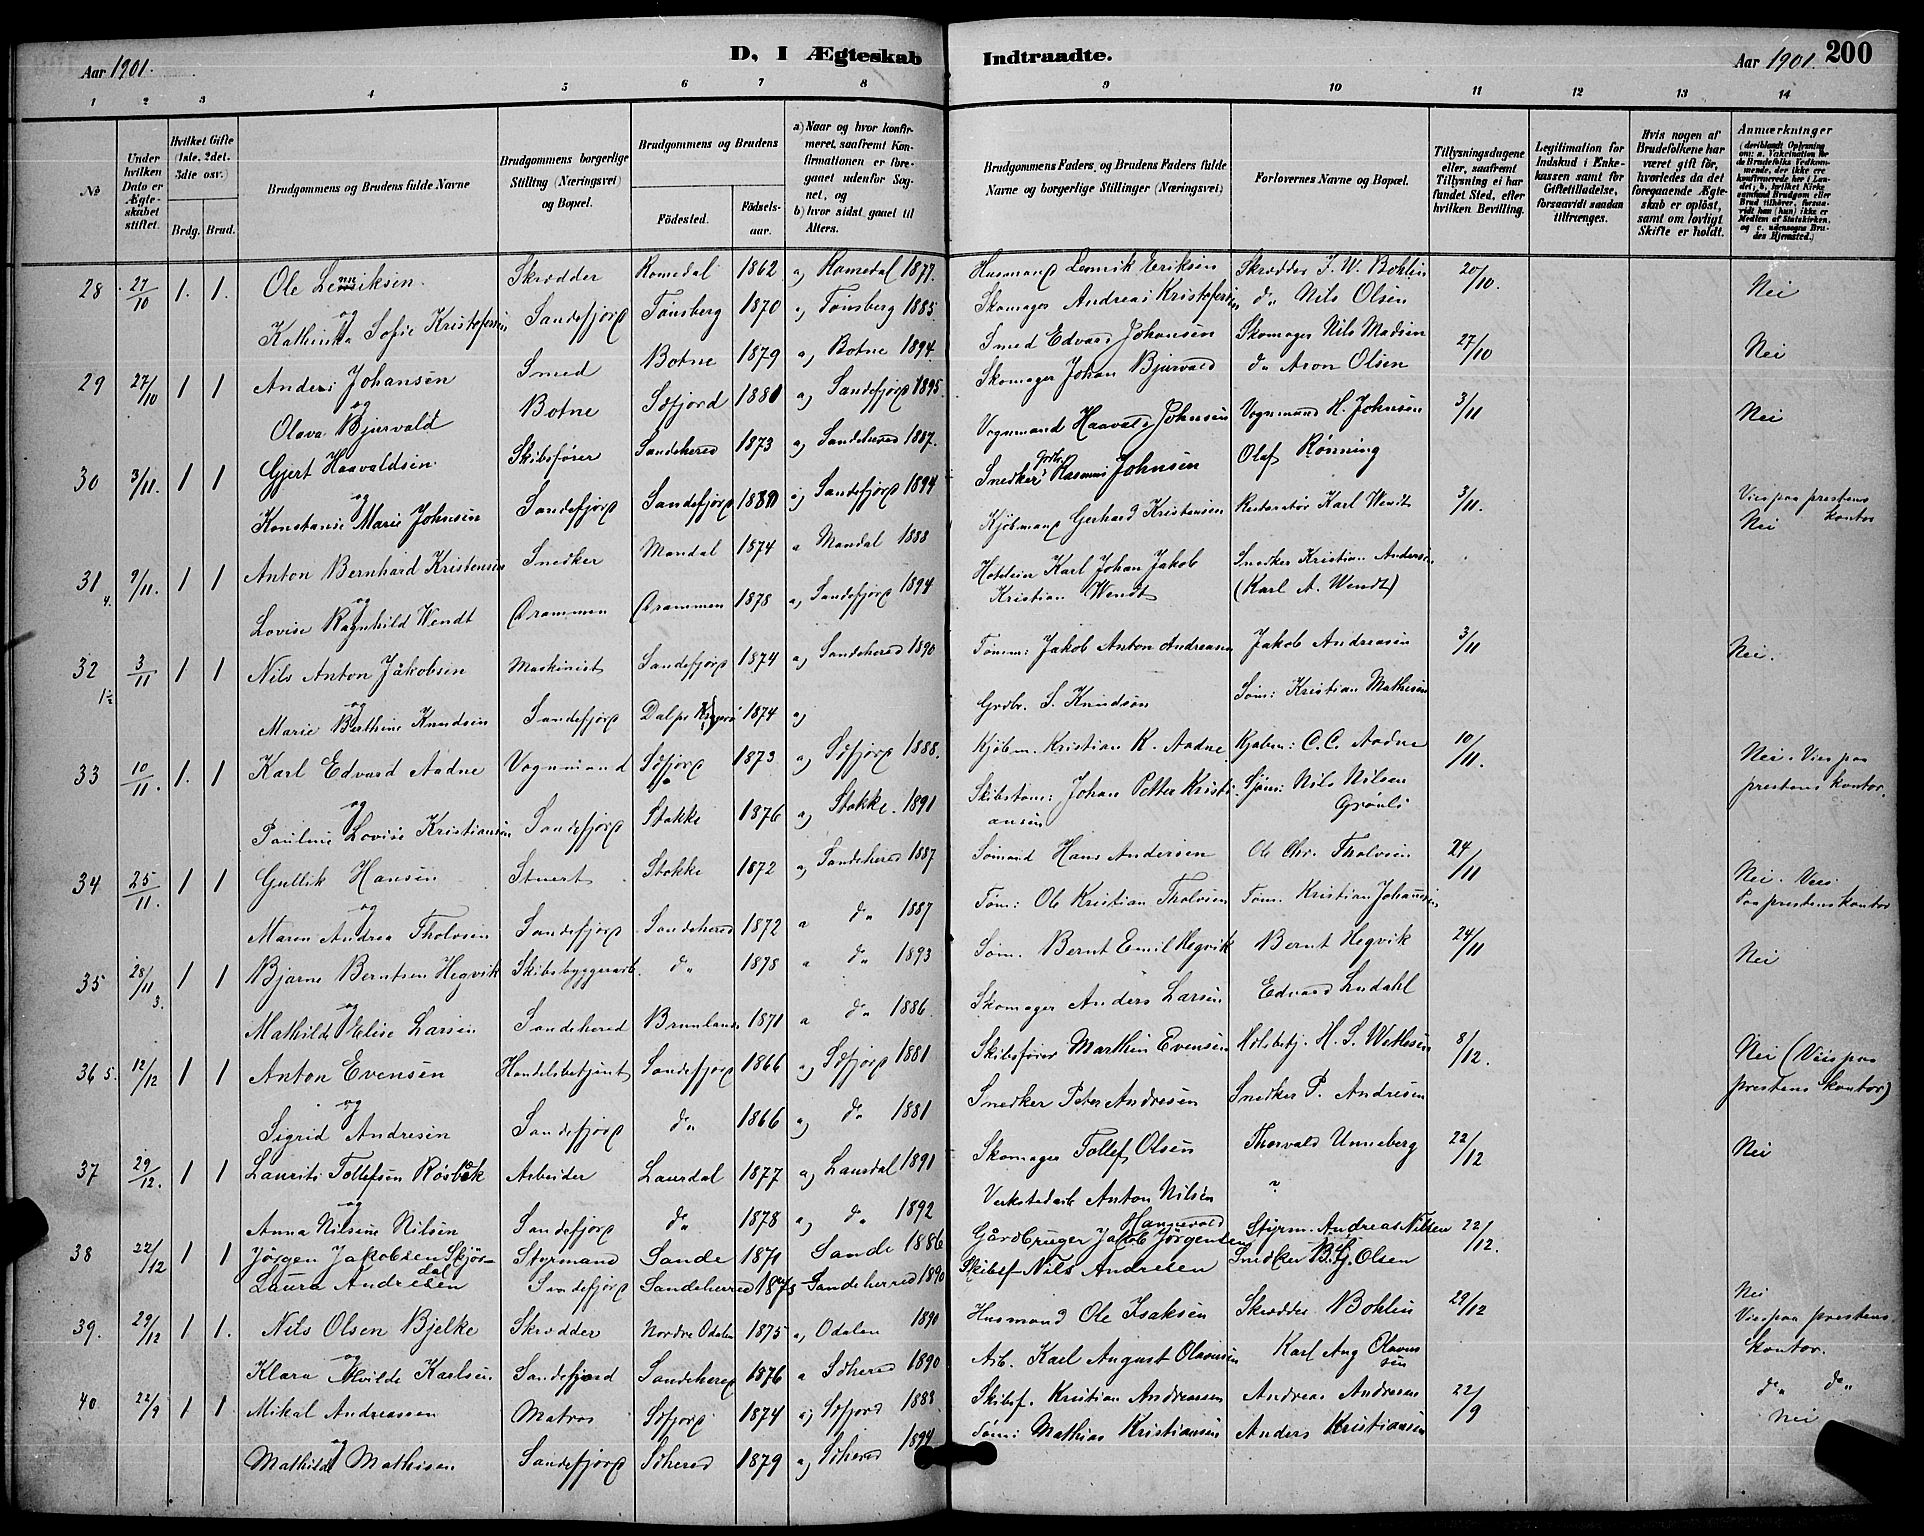 Aar 1901. D, I Ægteskab Indtraadte. Aar 1901. 200
1 2 3 4 5 6 7 8 9 10 11 12 13 14
No
Under hvilken Dato er Ægteskabet stiftet.
Hvilket Gifte (1ste, 2det, 3die osv.)
Brdg. Brud.
Brudgommens og Brudens fulde Navne
Brudgommens borgerlige Stilling (Næringsvei) og Bopæl.
Brudgommens og Brudens
Fødested. Fødselsaar.
a) Naar og hvor konfirmeret, saafremt Konfirmationen er foregaaet udenfor Sognet, og
b) hvor sidst gaaet til Alters.
Brudgommens Faders, og Brudens Faders fulde Navne og borgerlige Stillinger (Næringsvei)
Forlovernes Navne og Bopæl.
Tillysningsdagene eller, saafremt Tillysning ei har fundet Sted, efter hvilken Bevilling.
Legitimation for Indskud i Enkekassen samt for Giftetilladelse, forsaavidt saadan tiltrænges.
Hvis nogen af Brudefolkene har været gift før, hvorledes da det foregaaende Ægteskab er opløst, samt om lovligt Skifte er holdt.
Anmærkninger (deriblandt Oplysning om: a. Vakcination for de Brudefolks Vedkommende, der ikke ere konfirmerede her i Landet; b, hvilket Kirkesamfund Brudgom eller Brud tilhører, forsaavidt han (hun) ikke er Medlem af Statskirken, og c. udensogns Brudes Hjemsted.)
28 27/10 1. 1. Ole Lennriksen Skrædder Romedal 1862 a, Romedal 1877. Husmand Lennrik Eriksen Skrædder J. W. Bohlin 20/10. Nei
og
Kathinka Sofie Kristofersen Sandefjord Tønsberg 1870 a, Tønsberg 1885. Skomager Andreas Kristofersen do Nils Olsen
29 27/10 1 1 Anders Johansen Smed Botne 1879 a, Botne 1894. Smed Edvard Johansen Skomager Nils Madsen 27/10 Nei
og
Olava Bjurvald Botne Sdfjord 1881 a, Sandefjord 1895. Skomager Johan Bjurvald do Aron Olsen
30 3/11. 1 1 Gjert Haavaldsen Skibsfører Sandeherred 1873 a, Sandeherred 1887. Vognmand Haavald Johnsen Vognmand H. Johnsen 3/11 Nei
og
Konstanse Marie Johnsen Sandefjord Sandefjord 1880 a, Sandefjord 1894 Snedker Rasmus Johnsen Olaf Rønning
31 9/11. 1 1 Anton Bernhard Kristensen Snedker Mandal 1874 a Mandal 1888 Kjøbmand Gerhard Kristensen Restoratør Karl Wendt 3/11. Vies paa prestens kontor Nei
og
Lovise Ragnhild Wendt Drammen Drammen 1878 a, Sandefjord 1894 Hoteleier Karl Johan Jakob Kristian Wendt Snedker Kristian Andersen (Karl A. Wendt)
32 3/11 1 1 Nils Anton Jakobsen Maskinist Sandefjord 1874 a, Sandeherred 1890 Tømm: Jakob Anton Andreasen Jakob Andreasen 3/11 Nei.
og
Marie Berthine Knudsen Sandefjord 1874 a, Grdbr. S. Knudsen Søm: Kristian Mathisen
33 10/11. 1. 1 Karl Edvard Aadne Vognmand Sdfjord 1873 a, Sdfjord 1888. Kjøbm. Kristian K. Aadne Kjøbm: C. C. Aadne 10/11. Nei. Vies paa prestens kontor.
og
Pauline Lovise Kristiansen Sandefjord Stokke 1876 a, Stokke. 1891 Skibstøm: Johan Petter Kristiansen Sjøm: Nils Nilsen Grønli
34 25/11. 1 1 Gullik Hansen Stuert Stokke 1872 a, Sandeherred 1887 Sømand Hans Andersen Ole Chr. Tholvsen 24/11 Nei. Vies. Paa prestens kontor
og
Maren Andrea Tholvsen Sandefjord Sandeherred 1872 a do 1887 Tøm: Ole Kristian Tholvsen Tøm. Kristian Johansen
35 28/11 1 1 Bjarne Berntsen Hegvik Skibsbyggerarb. do 1878 a do 1893 Søm. Bernt Emil Hegvik Bernt Hegvik 24/11 Nei
og
Mathilde Elise Larsen Sandeherred Brunlanes 1871 a do 1886. Skomager Anders Larsen Edvard Lindahl
36 12/12 1 1 Anton Evensen Handelsbetjent Sandefjord 1866 a, Sdfjord 1881 Skibsfører Marthin Evensen Hdlsbetj. H. S. Wettesen 8/12. Nei (Vies paa prestens kontor)
og
Sigrid Andresen Sandefjord do 1866 a, do 1881 Snedker Peter Andresen Snedker P. Andresen
37 29/12. 1 1 Laurits Tollefsen Røsbæk Arbeider Laurdal 1877 a, Laurdal 1891 Skomager Tollef Olsen Thorvald Unneberg 22/12 Nei
og
Anna Nilsine Nilsen Sandefjord do 1878 a, do 1892 Verkstedarb Anton Nilsen
38 22/12 1 1 Jørgen Jakobsen Skjørdal Styrmand Sande 1871 Sande 1886 Gårdbruger Jakob Jørgensen Styrm. Andreas Nilsen 22/12.
Laura Andresen Sandefjord Sandeherred 1875 Sandeherred 1890 Skibsf Nils Andresen Snedker B. G. Olsen
39. 29/12 1 1. Nils Olsen Bjelke Skrædder Nordre Odalen 1875 a, Odalen 1890 Husmand Ole Isaksen Skrædder Bohlin 29/12 Nei Vies paa prestens kontor.
og
Klara Alvilde Karlsen Sandefjord Sandeherred 1876 a Sdherred 1890. Arb. Karl August Olavesen Karl Aug Olavessen
40 22/9 1 1 Mikal Andreassen Matros Sdfjord 1874 a, Sdfjord 1888. Skibsf. Kristian Andreassen Andreas Andresen 22/9 do do Nei
og
Mathilde Mathisen Sandefjord Sdherred 1879 a, Sdherred 1894 Tøm: Mathias Kristiansen Anders Kristiansen